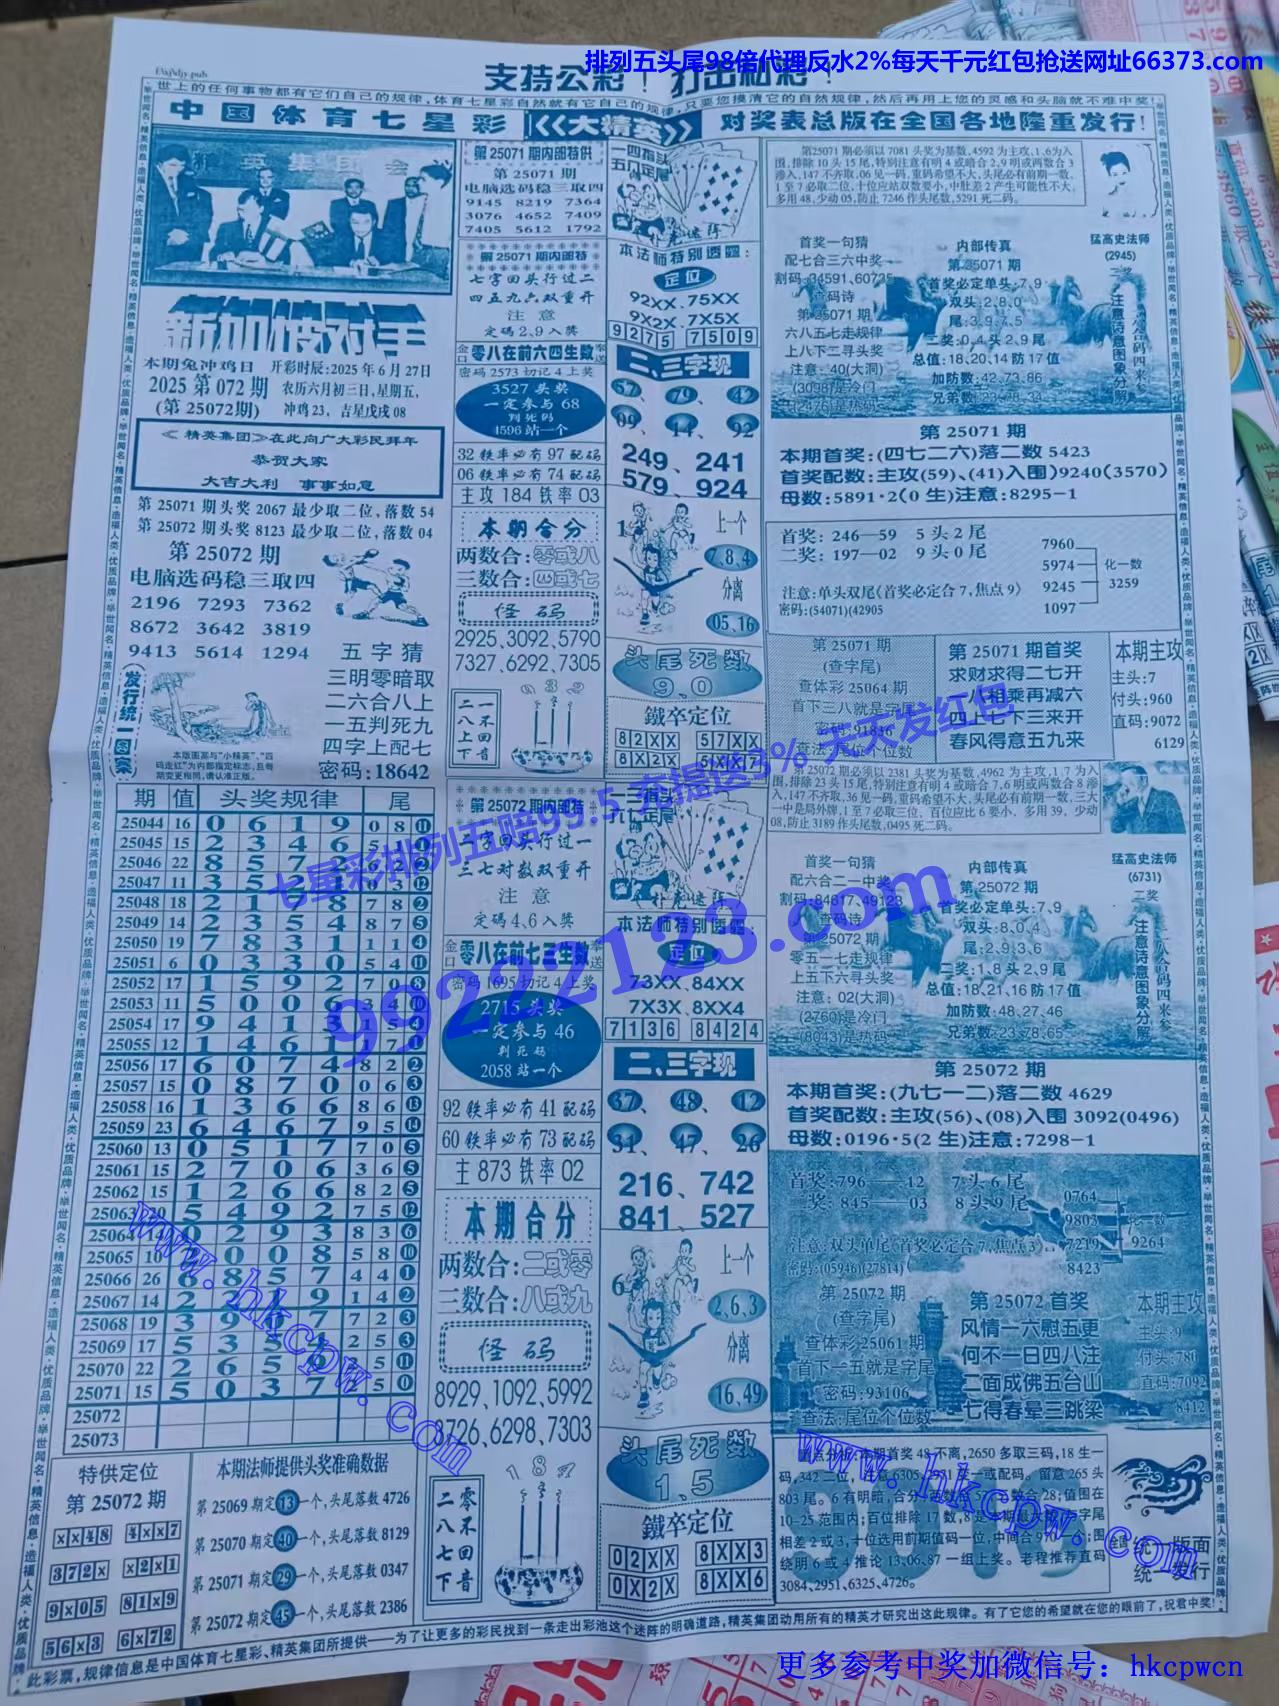 排列五头尾98倍代理反水2%每天千元红包抢送网址66373.com
支持公彩！打击私彩！
世上的任何事物都有它们自己的规律,体育七星彩自然就有它自己的规律,只要您摸清它的自然规律,然后再用上您的灵感和头脑就不难中奖!
中国体育七星彩
《大精英》
对奖表总版在全国各地隆重发行!
新加坡对手
本期兔冲鸡日 开彩时辰:2025年6月27日
2025第072期 农历六月初三日,星期五,
(第25072期) 冲鸡23、吉星戊戌08
《精英集团》在此向广大彩民拜年
恭贺大家
大吉大利 事事如意
第25071期头奖2067最少取二位,落数54
第25072期头奖8123最少取二位,落数04
第25072期
电脑选码稳三取四
2196 7293 7362
8672 3642 3819
9413 5614 1294
五字猜
三明零暗取
二六合八上
一五判死九
四字上配七
密码:18642
发行统一图案
本版图案与“小精英”、“四
码走红”为内部指定标志,且每
期变更相同,请认准正版。
期 值 头奖规律 尾
25044 16 0 6 1 9 0 8 11
25045 15 2 3 4 6
25046 22 8 5 7 2
25047 11 3 5 2
25048 18 2 1 8 7 8 2
25049 14 2 3 5 4 8 7 5
25050 19 7 8 3 1 1 1 4
25051 6 0 3 3 0 5 4 11
25052 17 1 5 9 2 7 0 8
25053 11 5 0 0 6
25054 17 9 4 1 3
25055 12 1 4 6 1
25056 17 6 0 7 4 8 2 2
25057 15 0 8 7 0 0 6 3
25058 16 1 3 6 6 8 6 13
25059 23 6 4 6 7 9 5 14
25060 13 0 5 1 7 7 0 5
25061 15 2 7 0 6 3 6 5
25062 15 1 2 6 6 8 2 5
25063 20 5 4 9 2 7 5 12
25064 14 0 2 9 3 8 3 6
25065 10 2 0 0 8 5 8 10
25066 26 6 8 5 7 4 4 1
25067 14 2 2 1 9 1 4 2
25068 19 3 9 0 7 7 2 3
25069 17 5 3 5 4 2 5 3
25070 22 2 6 5 9
25071 15 5 0 3 7
25072
25073
特供定位
第25072期
××48 4××7
372× ×2×1
9×05 81×9
56×3 6×72
本期法师提供头奖准确数据
第25069期定13一个,头尾落数4726
第25070期定40一个,头尾落数8129
第25071期定29一个,头尾落数0347
第25072期定45一个,头尾落数2386
第25071期内部特供
第25071期
电脑选码稳三取四
9145 8219 7364
3076 4652 7409
7405 5612 1792
第25071期内部特
七字回头行过二
四五九六双重开
注意
定码2、9入奖
金口 零八在前六四生数 奉送
密码2573切记4上奖
3527头奖
一定参与68
判死码
4596站一个
32铁率必有97配码
06铁率必有74配码
主攻184铁率03
本期合分
两数合:零或八
三数合:四或七
怪码
2925、3092、5790
7327、6292、7305
二八上下
一不回音
第25072期内部特
二字回头行过一
三七对数双重开
注意
定码4、6入奖
金口 零八在前七三生数 奉送
密码1695切记4上奖
2715头奖
一定参与46
判死码
2058站一个
92铁率必有41配码
60铁率必有73配码
主873铁率02
本期合分
两数合:二或零
三数合:八或九
怪码
8929、1092、5992
8726、6298、7303
二八七下
零不回音
一四指头
五八定尾
扑克迷阵
本法师特别透露:
定位
92XX、75XX
9X2X、7X5X
9275 7509
二、三字现
57、79、42
09、14、92
249、241
579、924
上一个
7,8,4
分离
05,16
头尾死数
9、0
鐵卒定位
82XX 57XX
8X2X 5XX7
一三指头
六七定尾
扑克迷阵
本法师特别透露:
定位
73XX、84XX
7X3X、8XX4
7136 8424
二、三字现
37、48、12
31、47、26
216、742
841、527
上一个
2,6,3
分离
16,49
头尾死数
1、5
鐵卒定位
02XX 8XX3
0X2X 8XX6
第25071期必须以7081头奖为基数,4592为主攻,1、6为入
围,排除10头15尾,特别注意有明4或暗合2、9明或两数合3
渗入,147不齐取,06见一码,重码希望不大,头尾必有前期一数,
1至7必取二位,十位应站双数要小,中肚差2产生可能性不大,
多用48,少动05,防止7246作头尾数,5291死二码。
首奖一句猜
配七合三六中奖
割码:34591,60725
查码诗
第25071期
六八五七走规律
上八下二寻头奖
注意:40(大洞)
(3098)是冷门
(2476)是热码
内部传真
第25071期
首奖必定单头:7、9
双头:2、8、0
尾:3、9、7、5
二奖:0、4头2、9尾
总值:18、20、14防17值
加防数:42、73、86
兄弟数:23、78、34
猛高史法师
(2945)
二奖
注意诗意图象分解
第25071期
本期首奖:(四七二六)落二数5423
首奖配数:主攻(59)、(41)入围)9240(3570)
母数:5891·2(0生)注意:8295-1
首奖:246—59 5头2尾
二奖:197—02 9头0尾
7960
5974
9245
1097
化一数
3259
注意:单头双尾(首奖必定合7,焦点9)
密码:(54071)(42905
第25071期
(查字尾)
查体彩25064期
首下三八就是字尾
密码:91836
查法:尾位个位数
第25071期首奖
求财求得二七开
一八相乘再减六
四上七下三来开
春风得意五九来
本期主攻
主头:7
付头:960
直码:9072
6129
第25072期必须以2381头奖为基数,4962为主攻,1、7为入
围,排除23头15尾,特别注意有明4或暗合7、6明或两数合8渗
入,147不齐取,36见一码,重码希望不大,头尾必有前期一数,三大
一中是局外牌,1至7必取三位,百位应比6要小,多用39,少动
08,防止3189作头尾数,0495死二码。
首奖一句猜
配六合二一中奖
割码:84617,49123
查码诗
第25072期
零五一七走规律
上五下六寻头奖
注意:02(大洞)
(2760)是冷门
(8043)是热码
内部传真
第25072期
首奖必定单头:7、9
双头:8、0、4
尾:2、9、3、6
二奖:1、8头2、9尾
总值:18、21、16防17值
加防数:48、27、46
兄弟数:23、78、65
猛高史法师
(6731)
二奖
注意诗意图象分解
第25072期
本期首奖:(九七一二)落二数4629
首奖配数:主攻(56)、(08)入围3092(0496)
母数:0196·5(2生)注意:7298-1
首奖:796—12 7头6尾
二奖:845—03 8头9尾
0764
9803
7219
8423
化一数
9264
注意:双头单尾(首奖必定合7,焦点3)
密码:(05946)(27814)
第25072期
(查字尾)
查体彩25061期
首下一五就是字尾
密码:93106
查法:尾位个位数
第25072首奖
风情一六慰五更
何不一日四八注
二面成佛五台山
七得春晕三跳梁
本期主攻
主头:9
付头:780
直码:7092
8412
10-25范围内;百位排除17数,8是本期最大
相差2或3,十位选用前期值码一位,中间合9
绕明6或4推论13、06、87一组上奖。老程推荐直码
3084、2951、6325、4726。
全国统一版面
统一发行
此彩票,规律信息是中国体育七星彩、精英集团所提供——为了让更多的彩民找到一条走出彩池这个迷阵的明确道路,精英集团动用所有的精英才研究出这此规律。有了它您的希望就在您的眼前了,祝君中奖!
七星彩排列五赔99.5 充提送3% 天天发红包
99222123.com
www.hkcpw.com
www.hkcpw.com
更多参考中奖加微信号：hkcpwcn